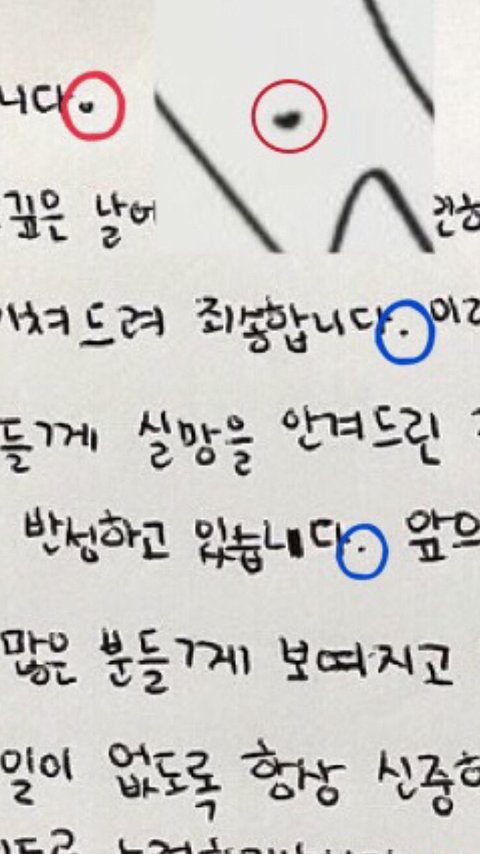 니다.
깊은 날에
가쳐드려 죄송합니다. 이
들께 실망을 안겨드린
반성하고 있습니다. 앞으
많은 분들께 보여지고
일이 없도록 항상 신중히